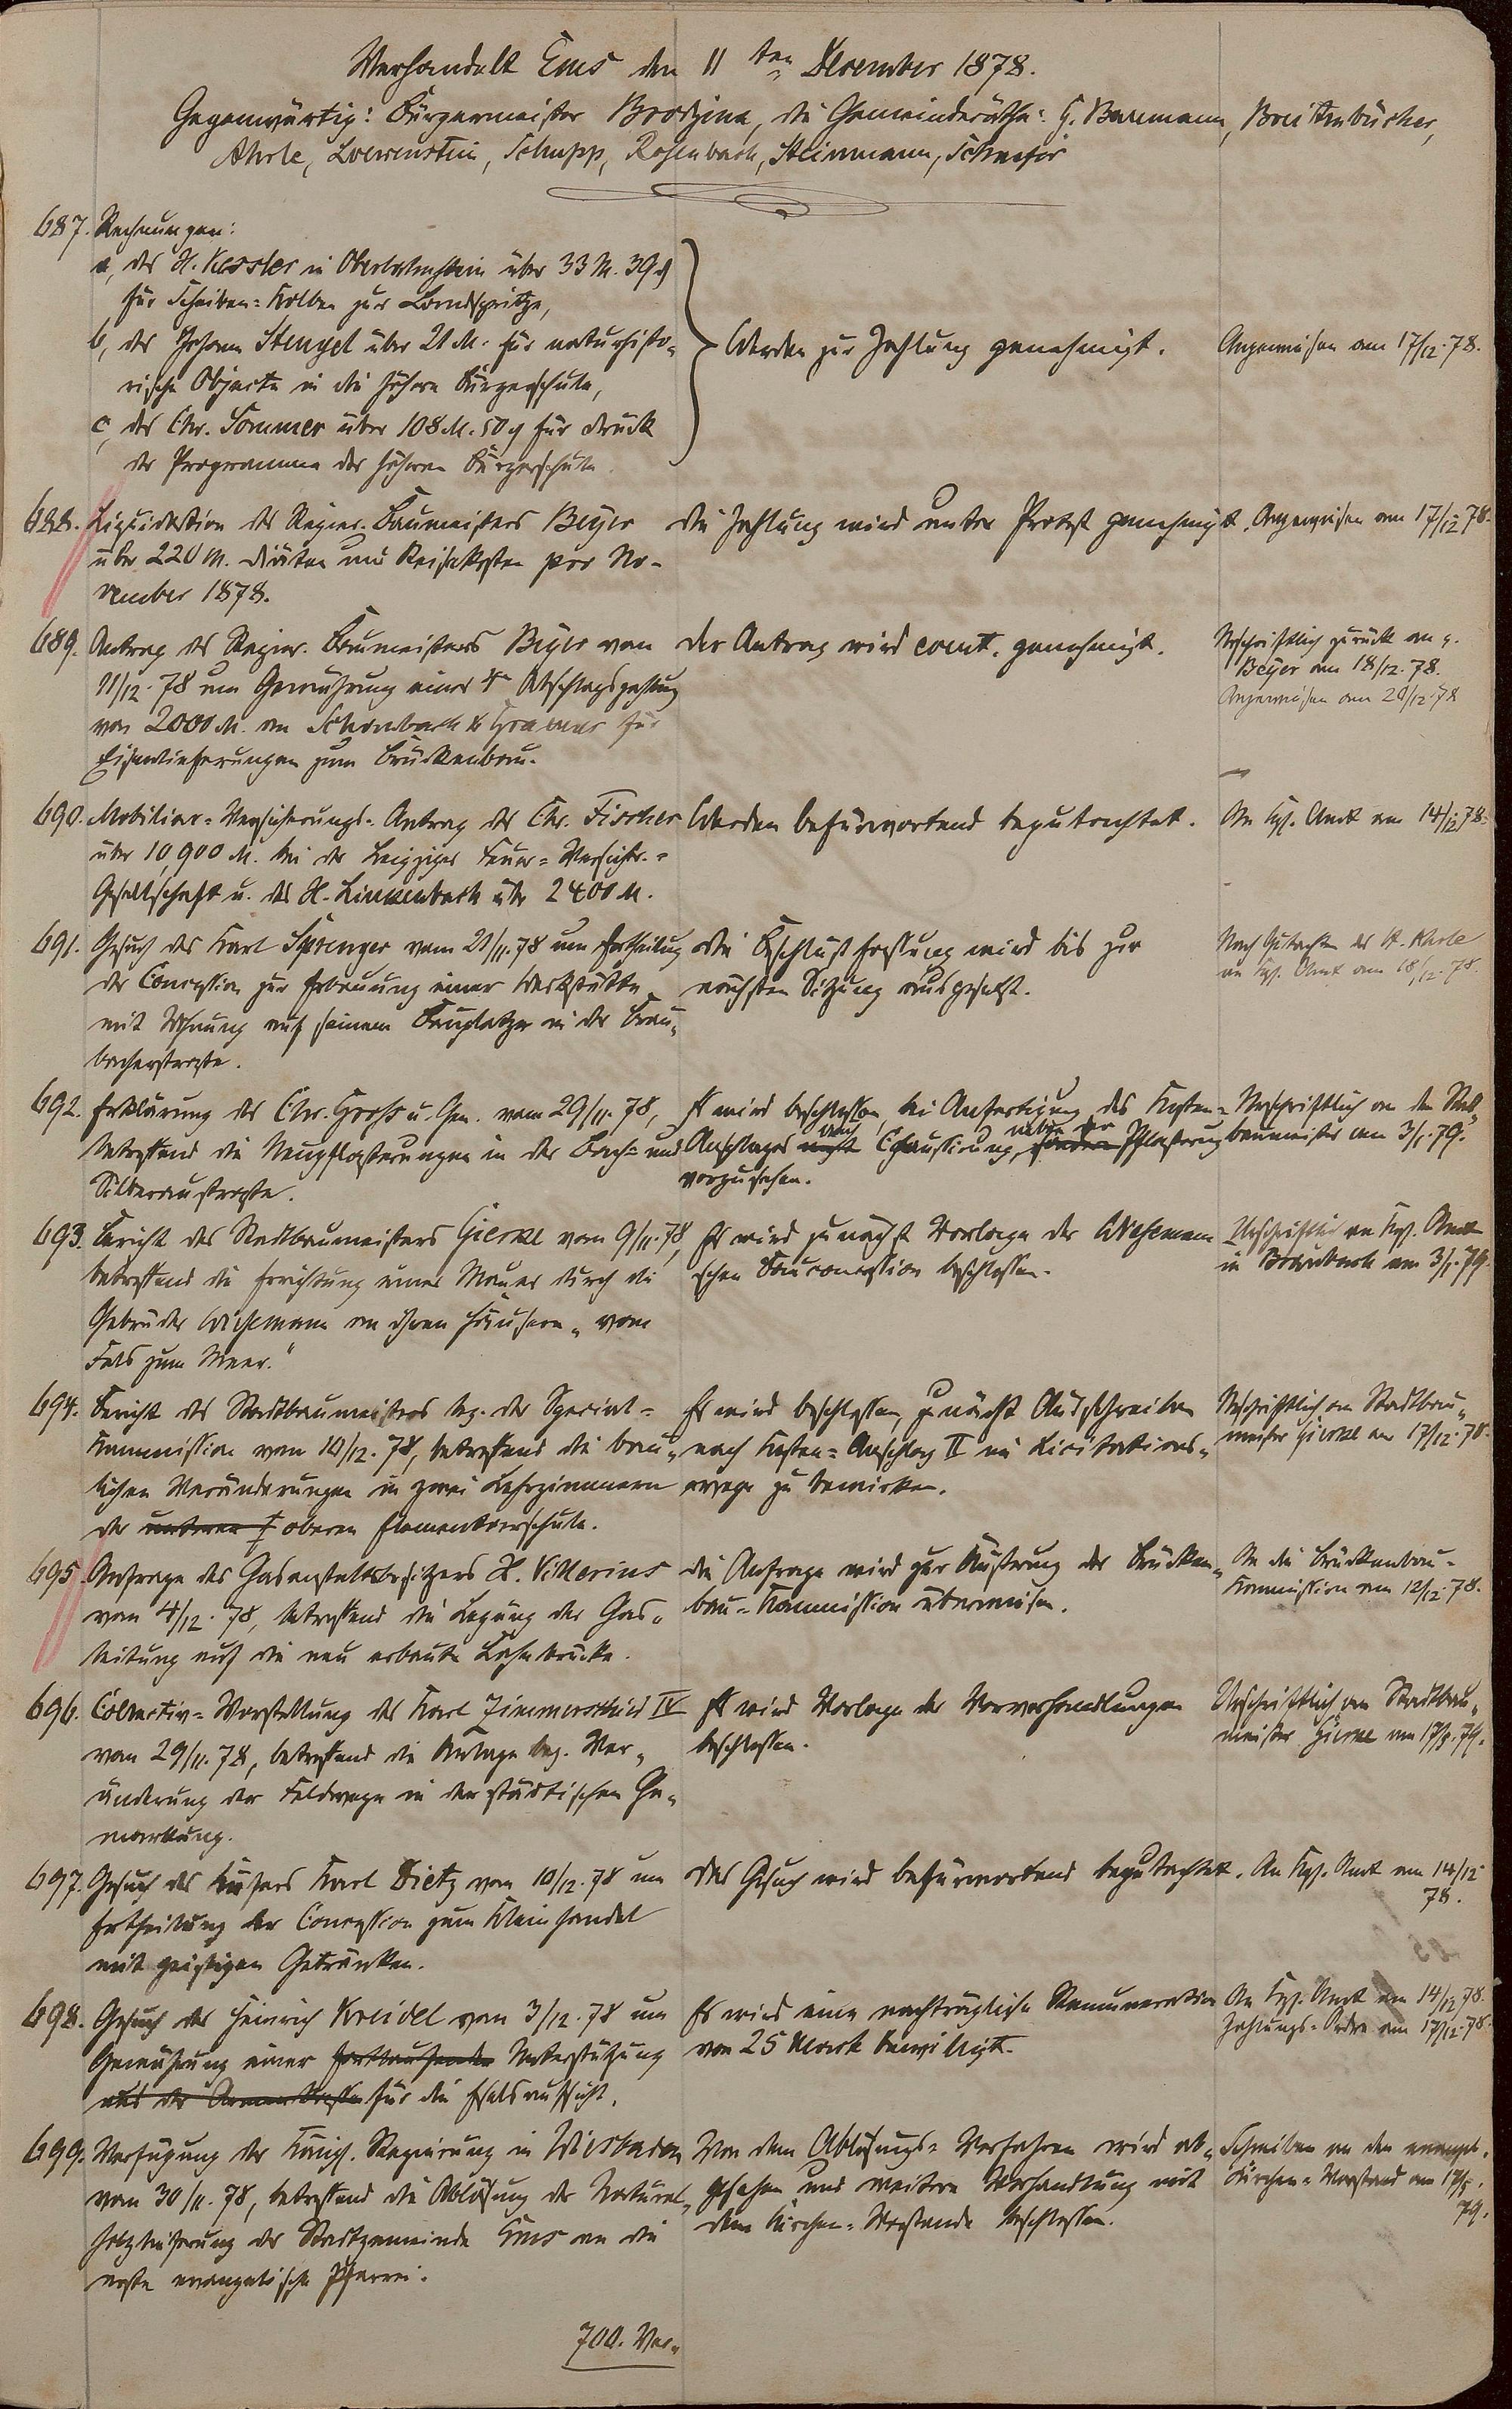 Verhandelt Ems den 11ten December 1878.
Gegenwärtig: Bürgermeister Brodzina, die Gemeinderäthe: G. Baumann, Breitenbücher,
Ahrle, Loewenstein, Schupp, Rosenbach, Steinmann, Schaefer
687. Rechnungen:
a, des H. Kessler in Oberlahnstein über 33 M. 39 ₰
für Scheiben-Kolben zur Landspritze,
b, des Johann Stengel über 21 M. für naturhisto-
rische Objecte in die höhere Bürgerschule,
c, des Chr. Sommer über 108 M. 50 ₰ für Druck
der Programme der höheren Bürgerschule.
Werden zur Zahlung genehmigt.
Angewiesen am 17/12.78.
688. Liquidation des Regier. Baumeisters Beyer
über 220 M. Diäten und Reisekosten pro No-
vember 1878.
Die Zahlung wird unter Protest genehmigt.
Angewiesen am 17/12 78.
689. Antrag des Regier. Baumeisters Beyer vom
11/12.78 um Gewährung einer 4n Abschlagszahlung
von 2000 M. an Schombach & Gramer für
Eisenlieferungen zum Brückenbau.
Der Antrag wird event. genehmigt.
Urschriftlich zurück an H.
Beyer am 18/12.78.
Angewiesen am 20/12.78
690. Mobiliar-Versicherungs-Antrag des Chr. Fischer
über 10,900 M. bei der Leipziger Feuer-Versichr.-
Gesellschaft u. des H. Linkenbach über 2400 M.
Werden befürwortend begutachtet.
An Kgl. Amt am 14/12 78.
691. Gesuch des Karl Sprenger vom 21/11.78 um Ertheilung
der Concession zur Erbauung einer Werkstätte
mit Wohnung auf seinem Bauplatze in der Brau-
bacherstraße.
Die Beschlußfassung wird bis zur
nächsten Sitzung ausgesetzt.
Nach Gutachten des H. Ahrle
an Kgl. Amt am 18/12.78.
692. Erklärung des Chr. Groß u. Gen. vom 29/11.78,
betreffend die Neupflasterungen in der Bach- und
Silberaustraße.
Es wird beschlossen, bei Anfertigung des Kosten-
Anschlages nicht auch Chaussirung, sondern neben der Pflasterung
vorzusehen.
Urschriftlich an den Stadt-
baumeister am 3/1.79.
693. Bericht des Stadtbaumeisters Gierke vom 9/11.78,
betreffend die Errichtung einer Mauer durch die
Gebrüder Wiesemann an ihren Häusern „vom
Fels zum Meer."
Es wird zunächst Vorlage der Wiesemann-
schen Bauconcession beschlossen.
Urschriftlich an Kgl. Amt
in Braubach am 3/1.79.
694. Bericht des Stadtbaumeisters bez. der Special-
Kommission vom 10/12.78, betreffend die bau-
lichen Veränderungen in zwei Lehrzimmern
der unteren oberen Elementarschule.
Es wird beschlossen, zunächst Ausschreiben
nach Kosten-Anschlag II im Licitations-
wege zu bewirken.
Urschriftlich an Stadtbau-
meister Gierke am 17/12.78.
695. Anfrage des Gasanstaltsbesitzers H. Vitterius
vom 4/12.78, betreffend die Legung der Gas-
leitung auf die neu erbaute Lahnbrücke.
Die Anfrage wird zur Äußerung der Brücken-
bau-Kommission überwiesen.
An die Brückenbau-
Kommission am 12/12.78.
696. Collectiv-Vorstellung des Karl Zimmerschied IV
vom 29/11.78, betreffend die Anlage bez. Ver-
änderung der Feldwege in der städtischen Ge-
markung.
Es wird Vorlage der Vorverhandlungen
beschlossen.
Urschriftlich an Stadtbau-
meister Gierke am 17/1.79.
697. Gesuch des Küfers Karl Dietz vom 10/12.78 um
Ertheilung der Concession zum Kleinhandel
mit geistigen Getränken.
Das Gesuch wird befürwortend begutachtet.
An Kgl. Amt am 14/12
78.
698. Gesuch des Heinrich Kreidel vom 3/12.78 um
Gewährung einer fortlaufenden Unterstützung
aus der Armenkasse für die Eselsaufsicht.
Es wird eine nachträgliche Remuneration
von 25 Mark bewilligt.
An Kgl. Amt am 14/12 78.
Zahlungs-Ordre am 17/12.78.
699. Verfügung der Königl. Regierung in Wiesbaden
vom 30/11.78, betreffend die Ablösung der Natural-
holzlieferung der Stadtgemeinde Ems an die
erste evangelische Pfarrei.
Von dem Ablösungs-Verfahren wird ab-
gesehen und weitere Verhandlung mit
dem Kirchen-Vorstande beschlossen.
Schreiben an den evangel.
Kirchen-Vorstand am 17/1.
79.
700. Ver-